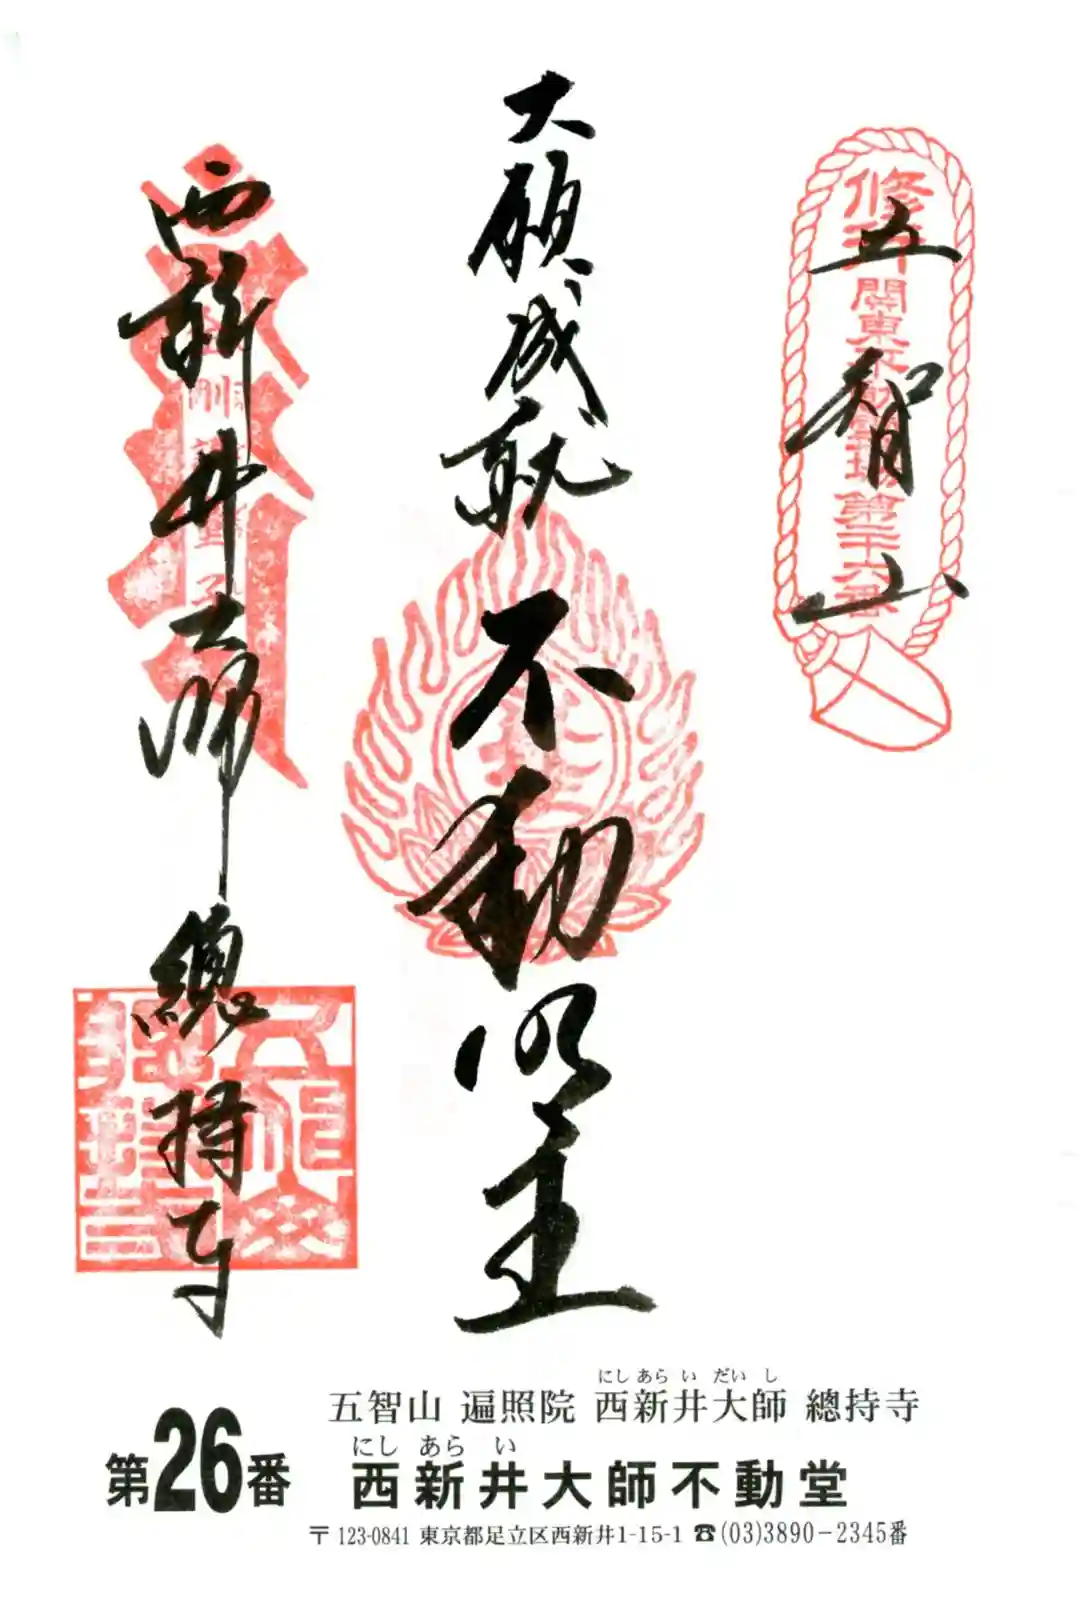 五智山
修行 関東不動霊場第二十六番
大願成就 不動明王
西新井大師 總持寺
にしあらいだいし
五智山 遍照院 西新井大師 總持寺
にしあらい
第26番 西新井大師不動堂
〒123-0841 東京都足立区西新井1-15-1 ☎(03)3890-2345番